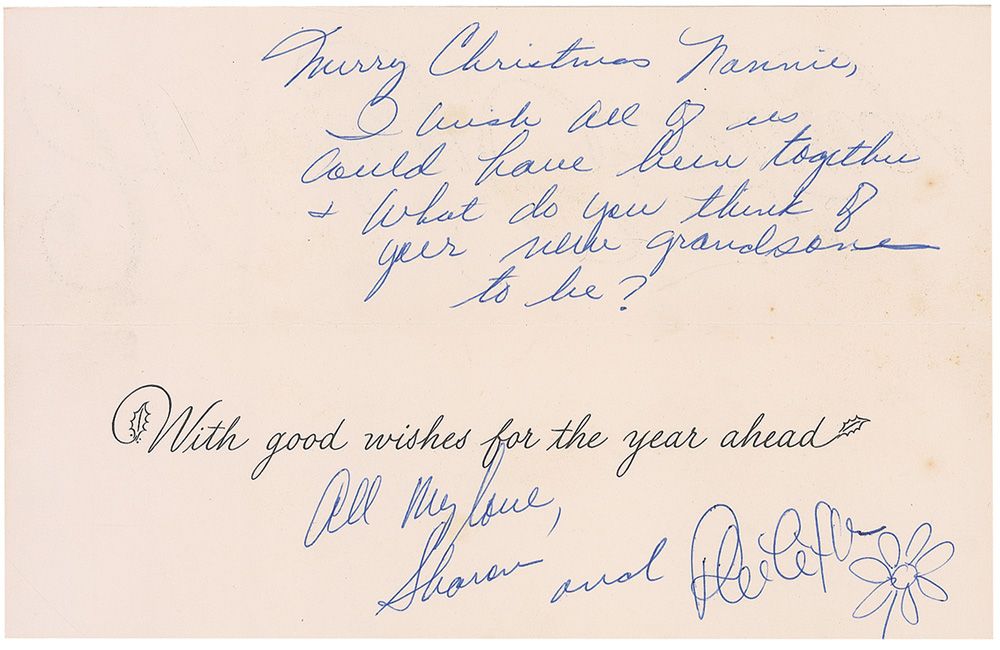 Merry Christmas Nannie,
I wish all of us
could have been together
+ what do you think of
your new grandson
to be?
With good wishes for the year ahead
All My love,
Sharon and